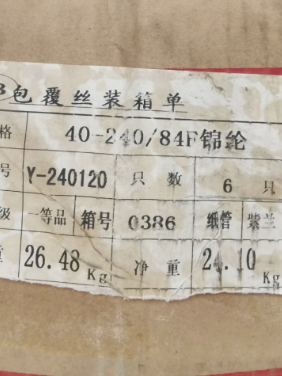 B包覆丝装箱单
格 40-240/84F锦纶
号 Y-240120 只数 6只
级 一等品 箱号 0386 纸管 紫兰
重 26.48Kg 净重 24.10Kg